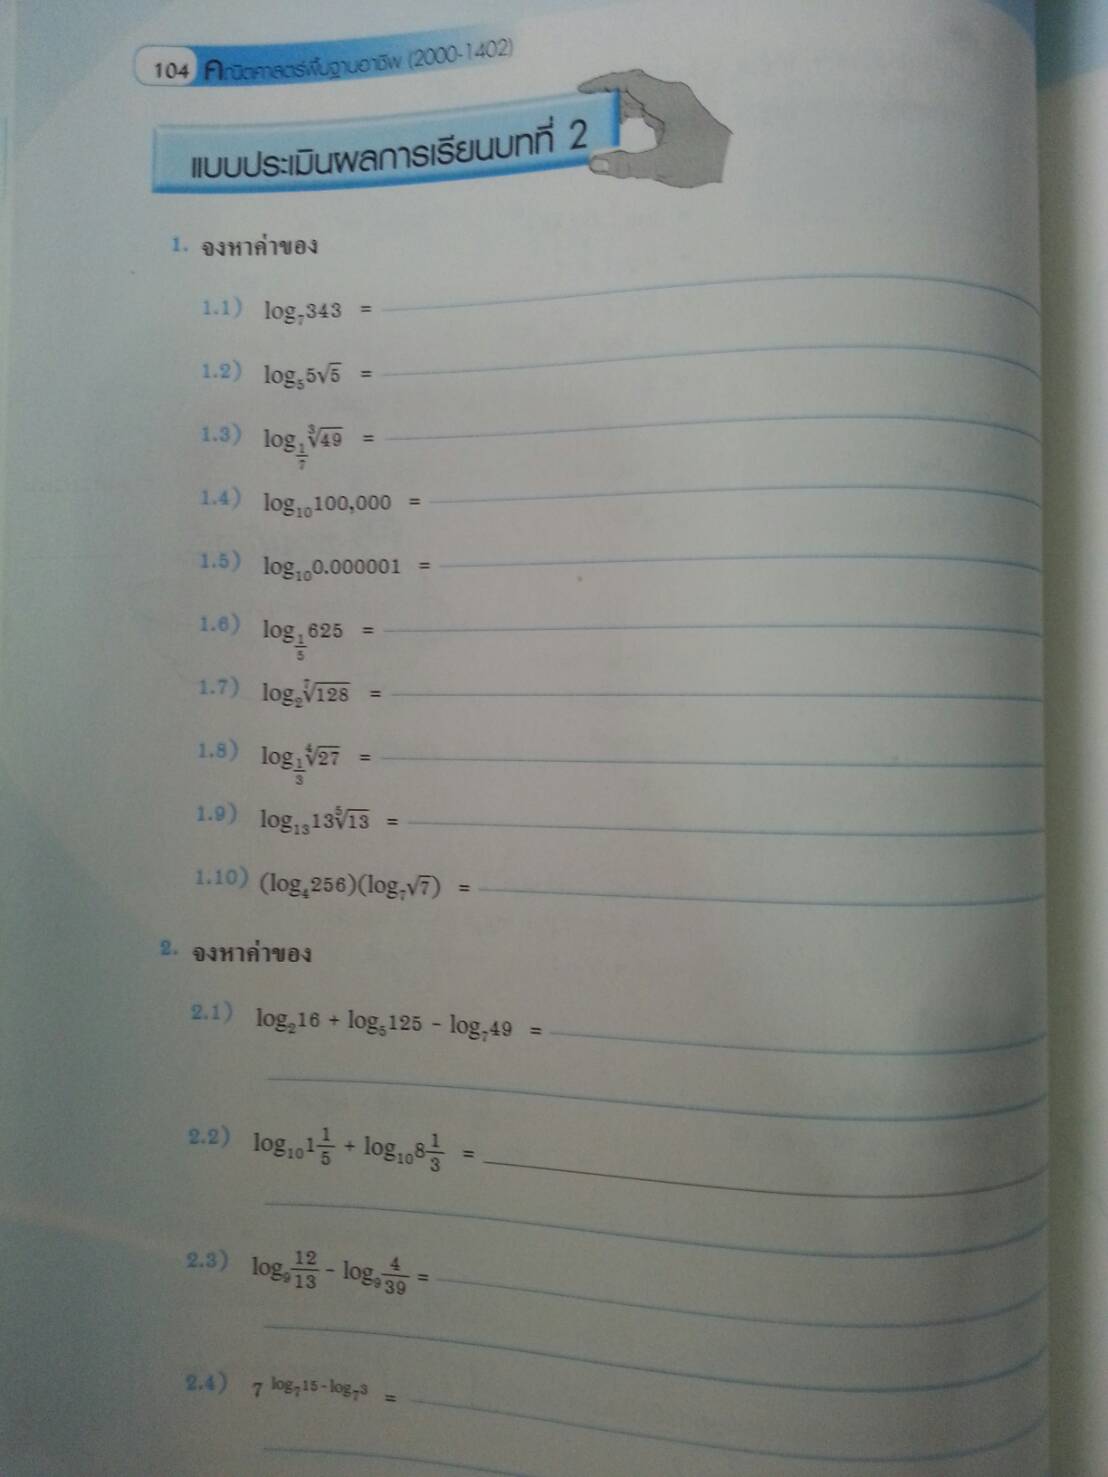 104 คณิตศาสตร์พื้นฐานอาชีพ (2000-1402)
แบบประเมินผลการเรียนบทที่ 2
1. จงหาค่าของ
1.1) log₇343 =
1.2) log₅5√5 =
1.3) log_(1/7) ∛49 =
1.4) log₁₀100,000 =
1.5) log₁₀0.000001 =
1.6) log_(1/5) 625 =
1.7) log₂ ⁷√128 =
1.8) log_(1/3) ⁴√27 =
1.9) log₁₃13 ⁵√13 =
1.10) (log₄256)(log₇√7) =
2. จงหาค่าของ
2.1) log₂16 + log₅125 - log₇49 =
2.2) log₁₀1 1/5 + log₁₀8 1/3 =
2.3) log₉ 12/13 - log₉ 4/39 =
2.4) 7^(log₇15-log₇3) =